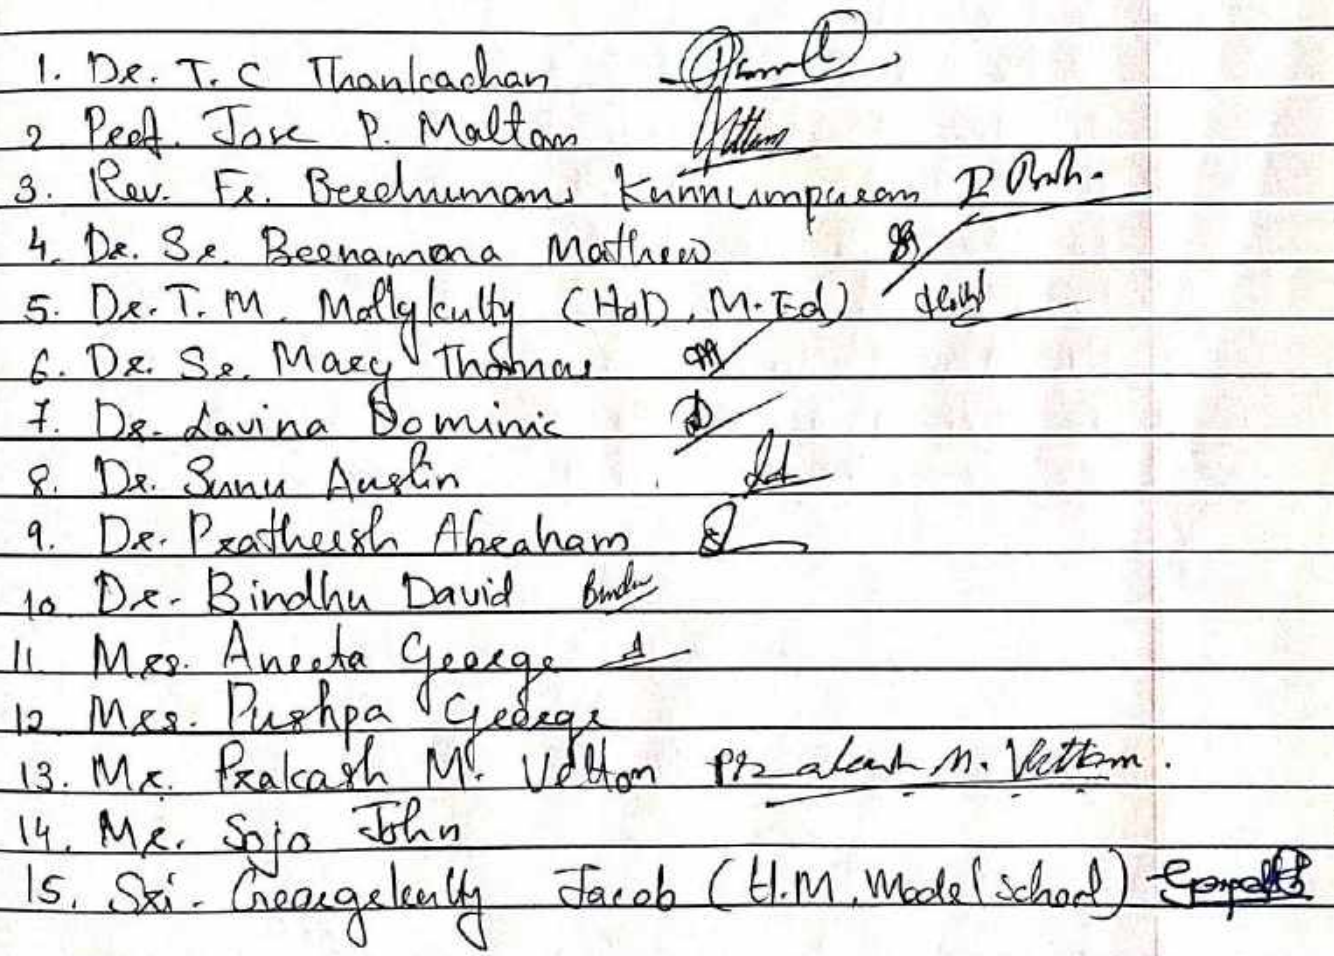 1. Dr. T. C Thankachan
2 Prof. Jose P. Mattam
3. Rev. Fr. Berchumans Kunnumpuram
4. Dr. Sr. Beenamona Mathew
5. Dr. T. M. Mollykutty (HoD, M.Ed)
6. Dr. Sr. Mary Thomas
7. Dr. Lavina Dominic
8. Dr. Sunu Austin
9. Dr. Pratheesh Abraham
10 Dr. Bindhu David Bindu
11. Mrs. Aneeta George
12. Mrs. Pushpa George
13. Mr. Prakash M. Vettom Prakash M. Vettom.
14. Mr. Sojo John
15. Sri. Georgekutty Jacob (H.M, Model School)